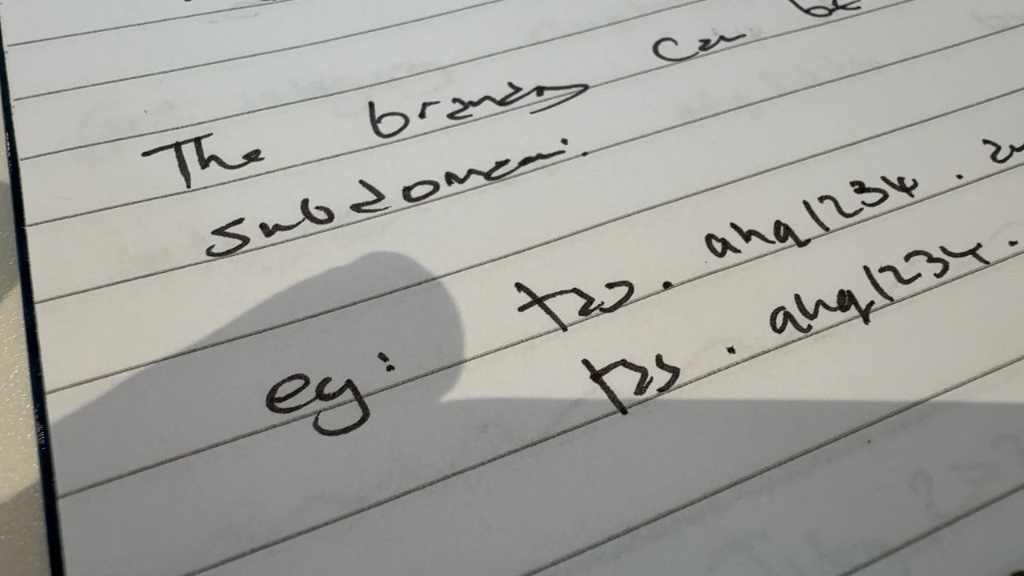 The brands can be
subdomain.
eg: . ahq1234 .
. ahq1234 .